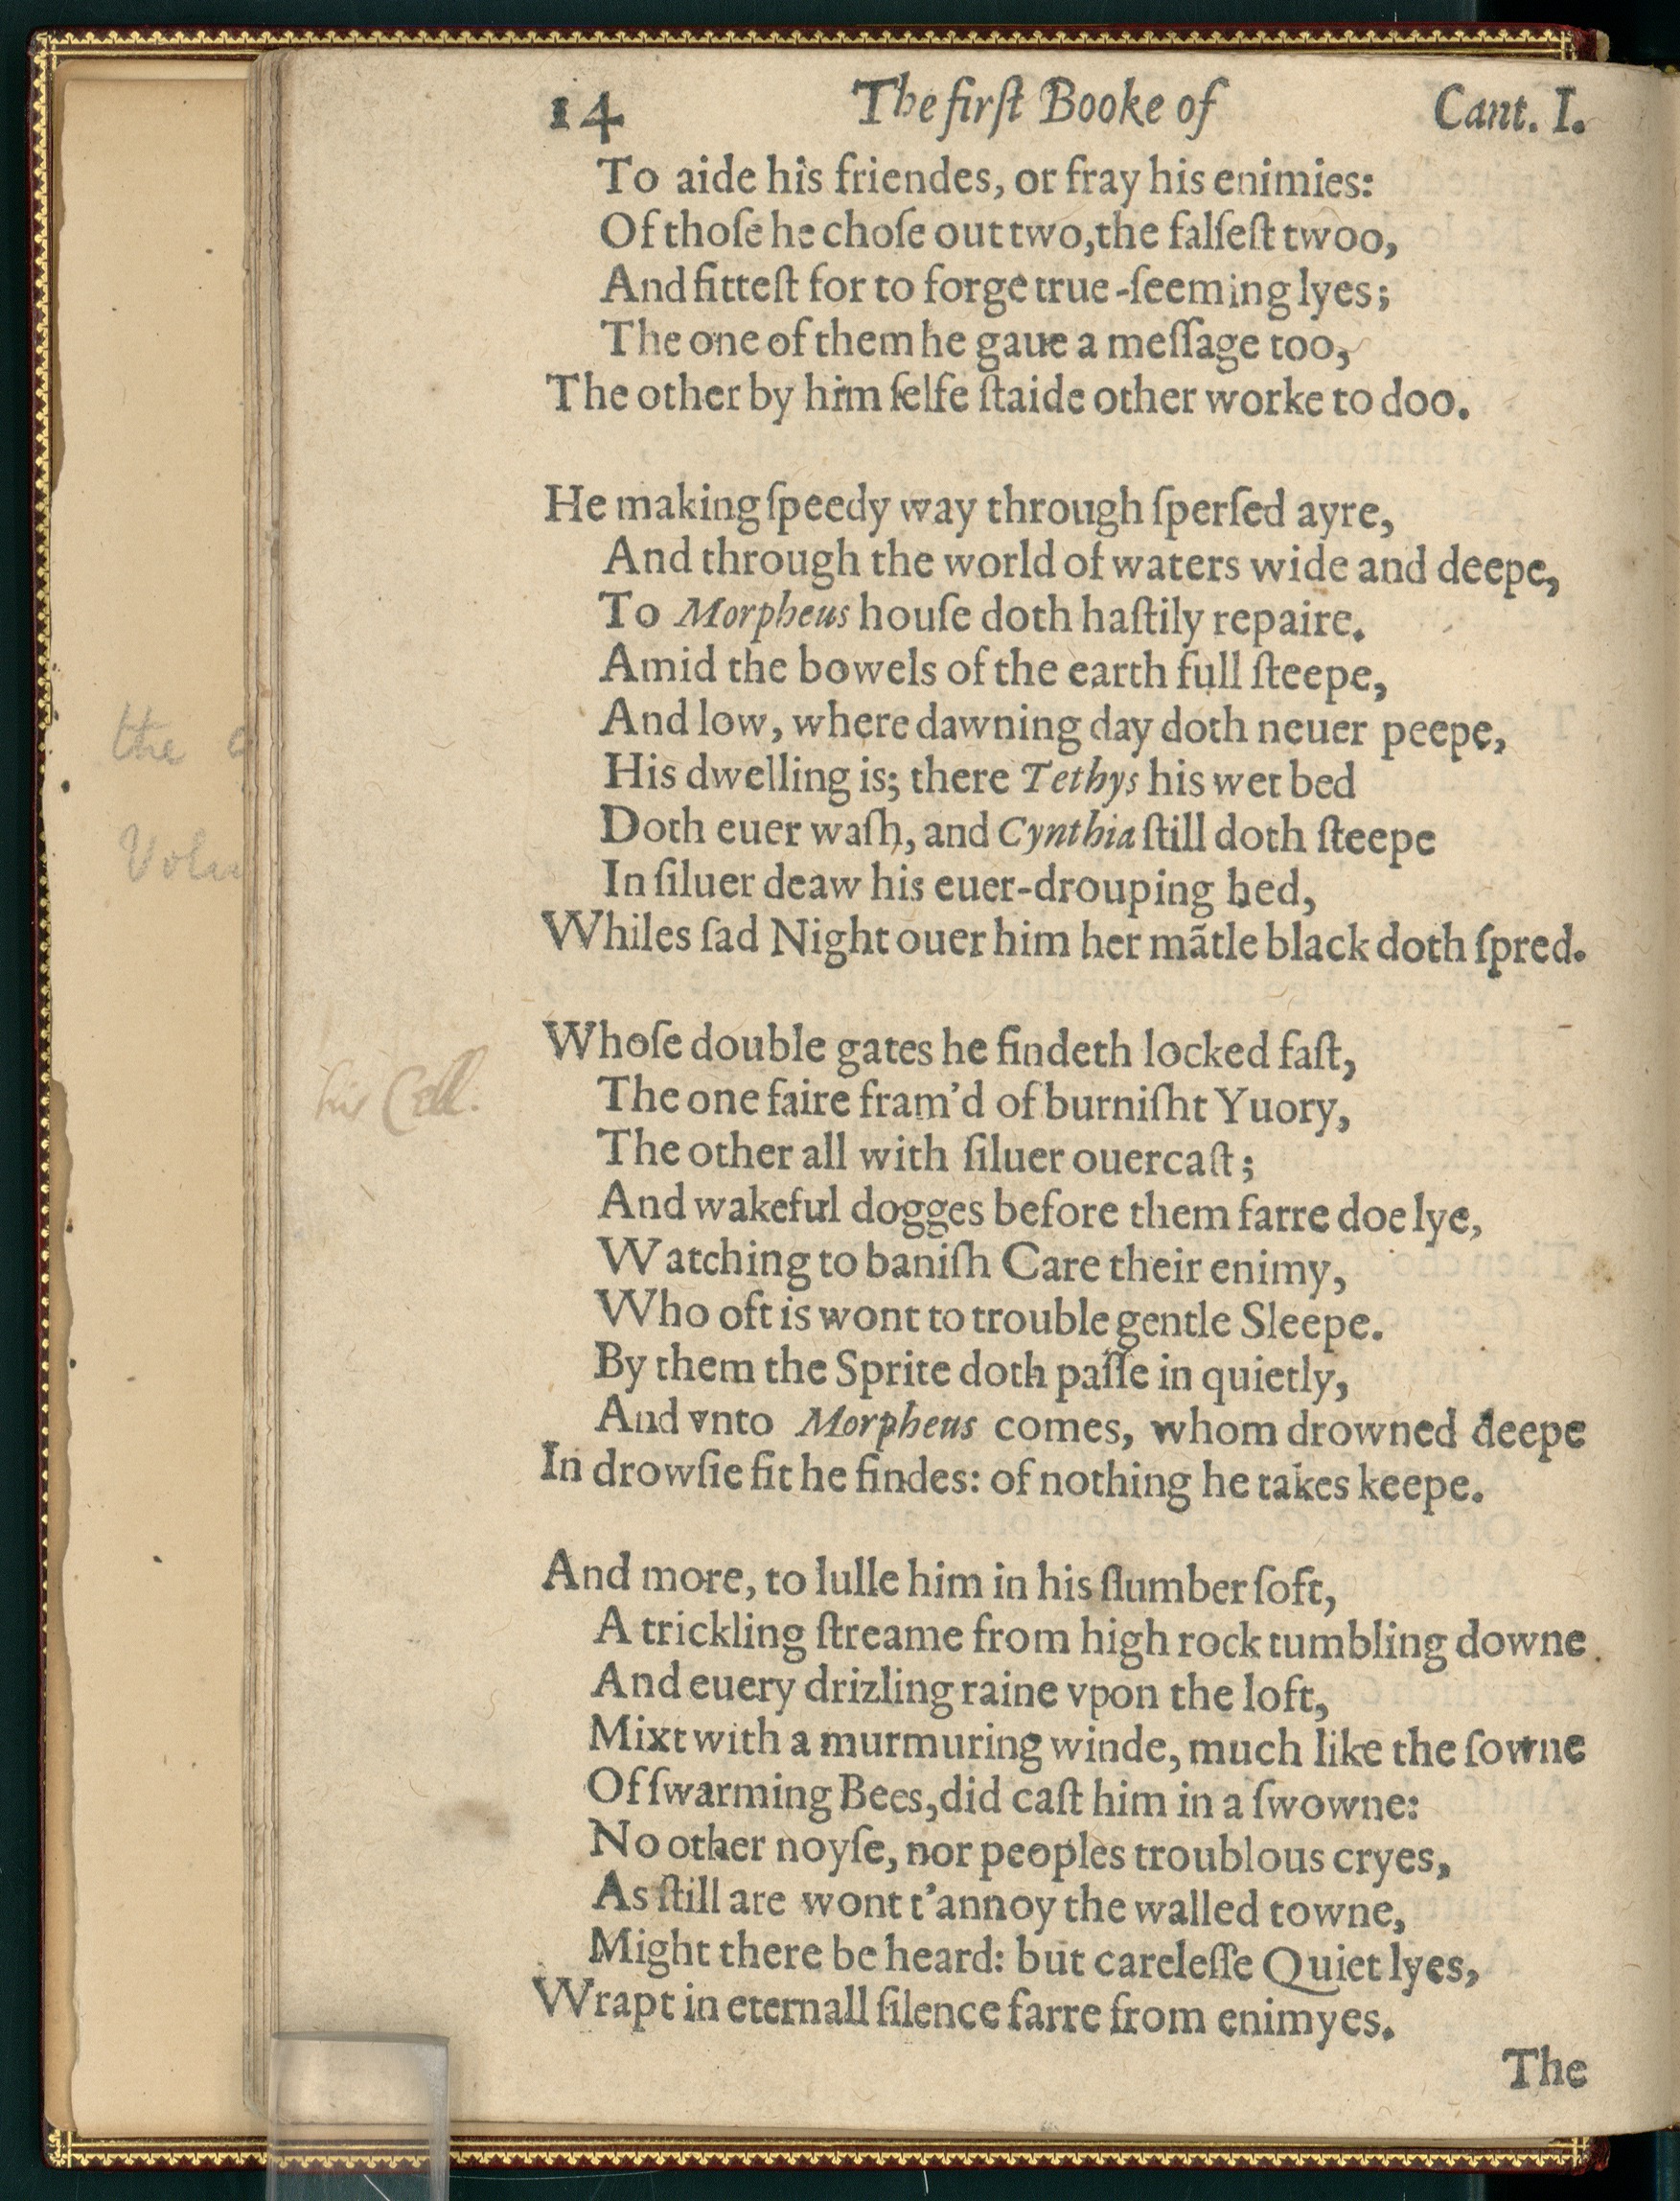 14 The firſt Booke of Cant. I.
To aide his friendes, or fray his enimies:
Of thoſe he choſe out two, the falſeſt twoo,
And fitteſt for to forge true-ſeeming lyes;
The one of them he gaue a meſſage too,
The other by him ſelfe ſtaide other worke to doo.
He making ſpeedy way through ſperſed ayre,
And through the world of waters wide and deepe,
To Morpheus houſe doth haſtily repaire.
Amid the bowels of the earth full ſteepe,
And low, where dawning day doth neuer peepe,
His dwelling is; there Tethys his wet bed
Doth euer waſh, and Cynthia ſtill doth ſteepe
In ſiluer deaw his euer-drouping hed,
Whiles ſad Night ouer him her mãtle black doth ſpred.
the
Whoſe double gates he findeth locked faſt,
his Cell.
The one faire fram'd of burniſht Yuory,
The other all with ſiluer ouercaſt;
And wakeful dogges before them farre doe lye,
Watching to baniſh Care their enimy,
Who oft is wont to trouble gentle Sleepe.
By them the Sprite doth paſſe in quietly,
And vnto Morpheus comes, whom drowned deepe
In drowſie fit he findes: of nothing he takes keepe.
And more, to lulle him in his ſlumber ſoft,
A trickling ſtreame from high rock tumbling downe
And euery drizling raine vpon the loft,
Mixt with a murmuring winde, much like the ſowne
Of ſwarming Bees, did caſt him in a ſwowne:
No other noyſe, nor peoples troublous cryes,
As ſtill are wont t'annoy the walled towne,
Might there be heard: but careleſſe Quiet lyes,
Wrapt in eternall ſilence farre from enimyes.
The